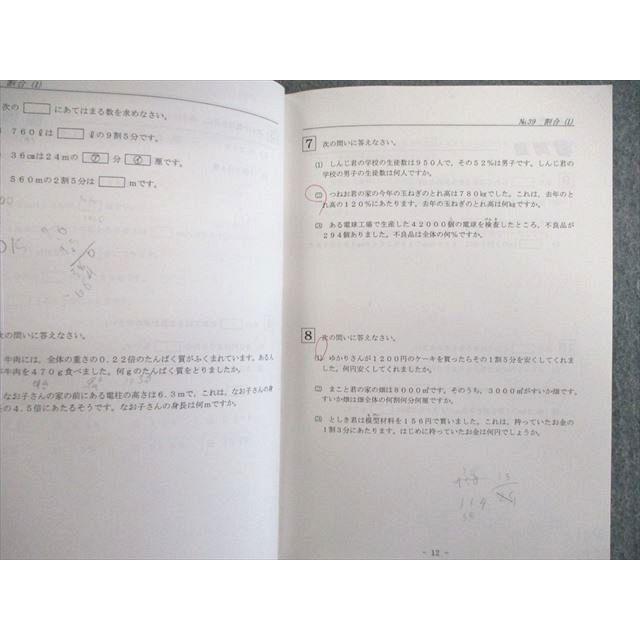 割合 (1)
次の
にあてはまる数を求めなさい。
760ℓは
ℓの9割5分です。
36㎝は24mの ㋐ 分 ㋑ 厘です。
560mの2割5分は
mです。
次の問いに答えなさい。
牛肉には、全体の重さの0.22倍のたんぱく質がふくまれています。ある人
牛肉を470g食べました。何gのたんぱく質をとりましたか。
なお子さんの家の前にある電柱の高さは6.3mで、これは、なお子さんの身
の4.5倍にあたるそうです。なお子さんの身長は何mですか。
№39 割合 (1)
7 次の問いに答えなさい。
(1) しんじ君の学校の生徒数は950人で、その52%は男子です。しんじ君の
学校の男子の生徒数は何人ですか。
(2) つねお君の家の今年の玉ねぎのとれ高は780㎏でした。これは、去年のと
れ高の120%にあたります。去年の玉ねぎのとれ高は何㎏ですか。
(3) ある電球工場で生産した42000個の電球を検査したところ、不良品が
294個ありました。不良品は全体の何%ですか。
8 次の問いに答えなさい。
(1) ゆかりさんが1200円のケーキを買ったらその1割5分を安くしてくれま
した。何円安くしてくれましたか。
(2) まこと君の家の畑は8000㎡です。そのうち、3000㎡がすいか畑です。
すいか畑は畑全体の何割何分何厘ですか。
(3) としき君は模型材料を156円で買いました。これは、持っていたお金の
1割3分にあたります。はじめに持っていたお金は何円でしょうか。
- 12 -